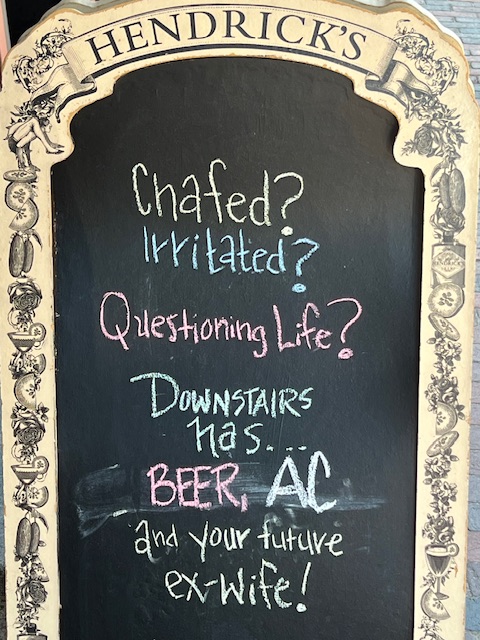 HENDRICK'S
Chafed?
Irritated?
Questioning Life?
DOWNSTAIRS
has...
BEER, AC
and your future
ex-wife!